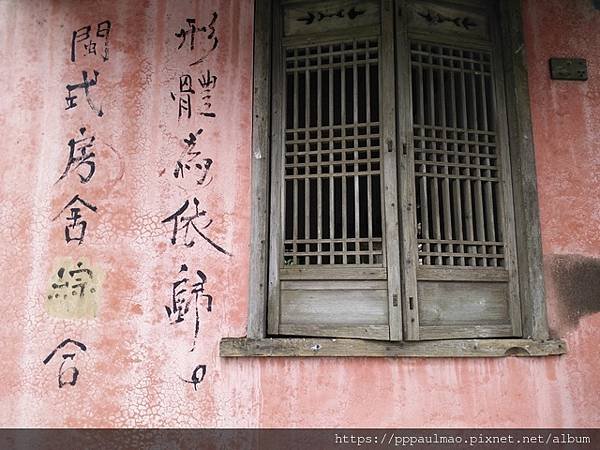 形體為依歸。
閩式房舍綜合
https://pppaulmao.pixnet.net/album